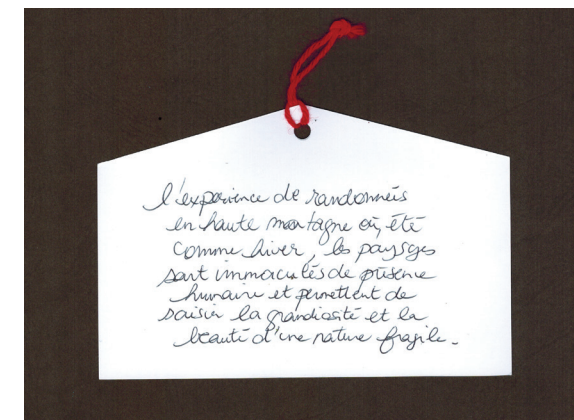 l'expérience de randonnées
en haute montagne où, été
comme hiver, les paysages
sont immaculés de présence
humaine et permettent de
saisir la grandiosité et la
beauté d'une nature fragile.